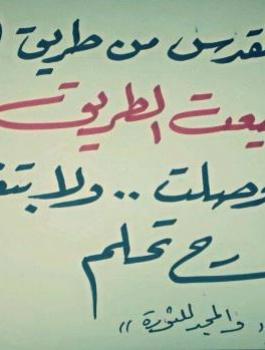 لقدس من طريق
يعت الطريق
وصلت .. ولا بتع
رح تحلم
والمجد للثورة »